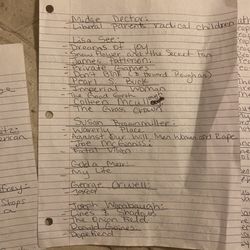 Midge Dector:
Liberal parents radical children
Lisa See:
Dreams of Joy
Snow flower and the Secret Fan
James Patterson:
Private Games
Don't Blink (& Howard Roughan)
Pearl S Buck
Imperial Woman
The Good Earth
Colleen McCull
The Grass Crown
Susan Brownmiller:
Waverly Place
Against Our Will: Men Women and Rape
Joe McGinnis:
Fatal Vision
Golda Meir:
My Life
George Orwell:
Joseph Wambaugh:
Lines & Shadows
The Onion Field
Donald Goines:
Dopefiend
Stops